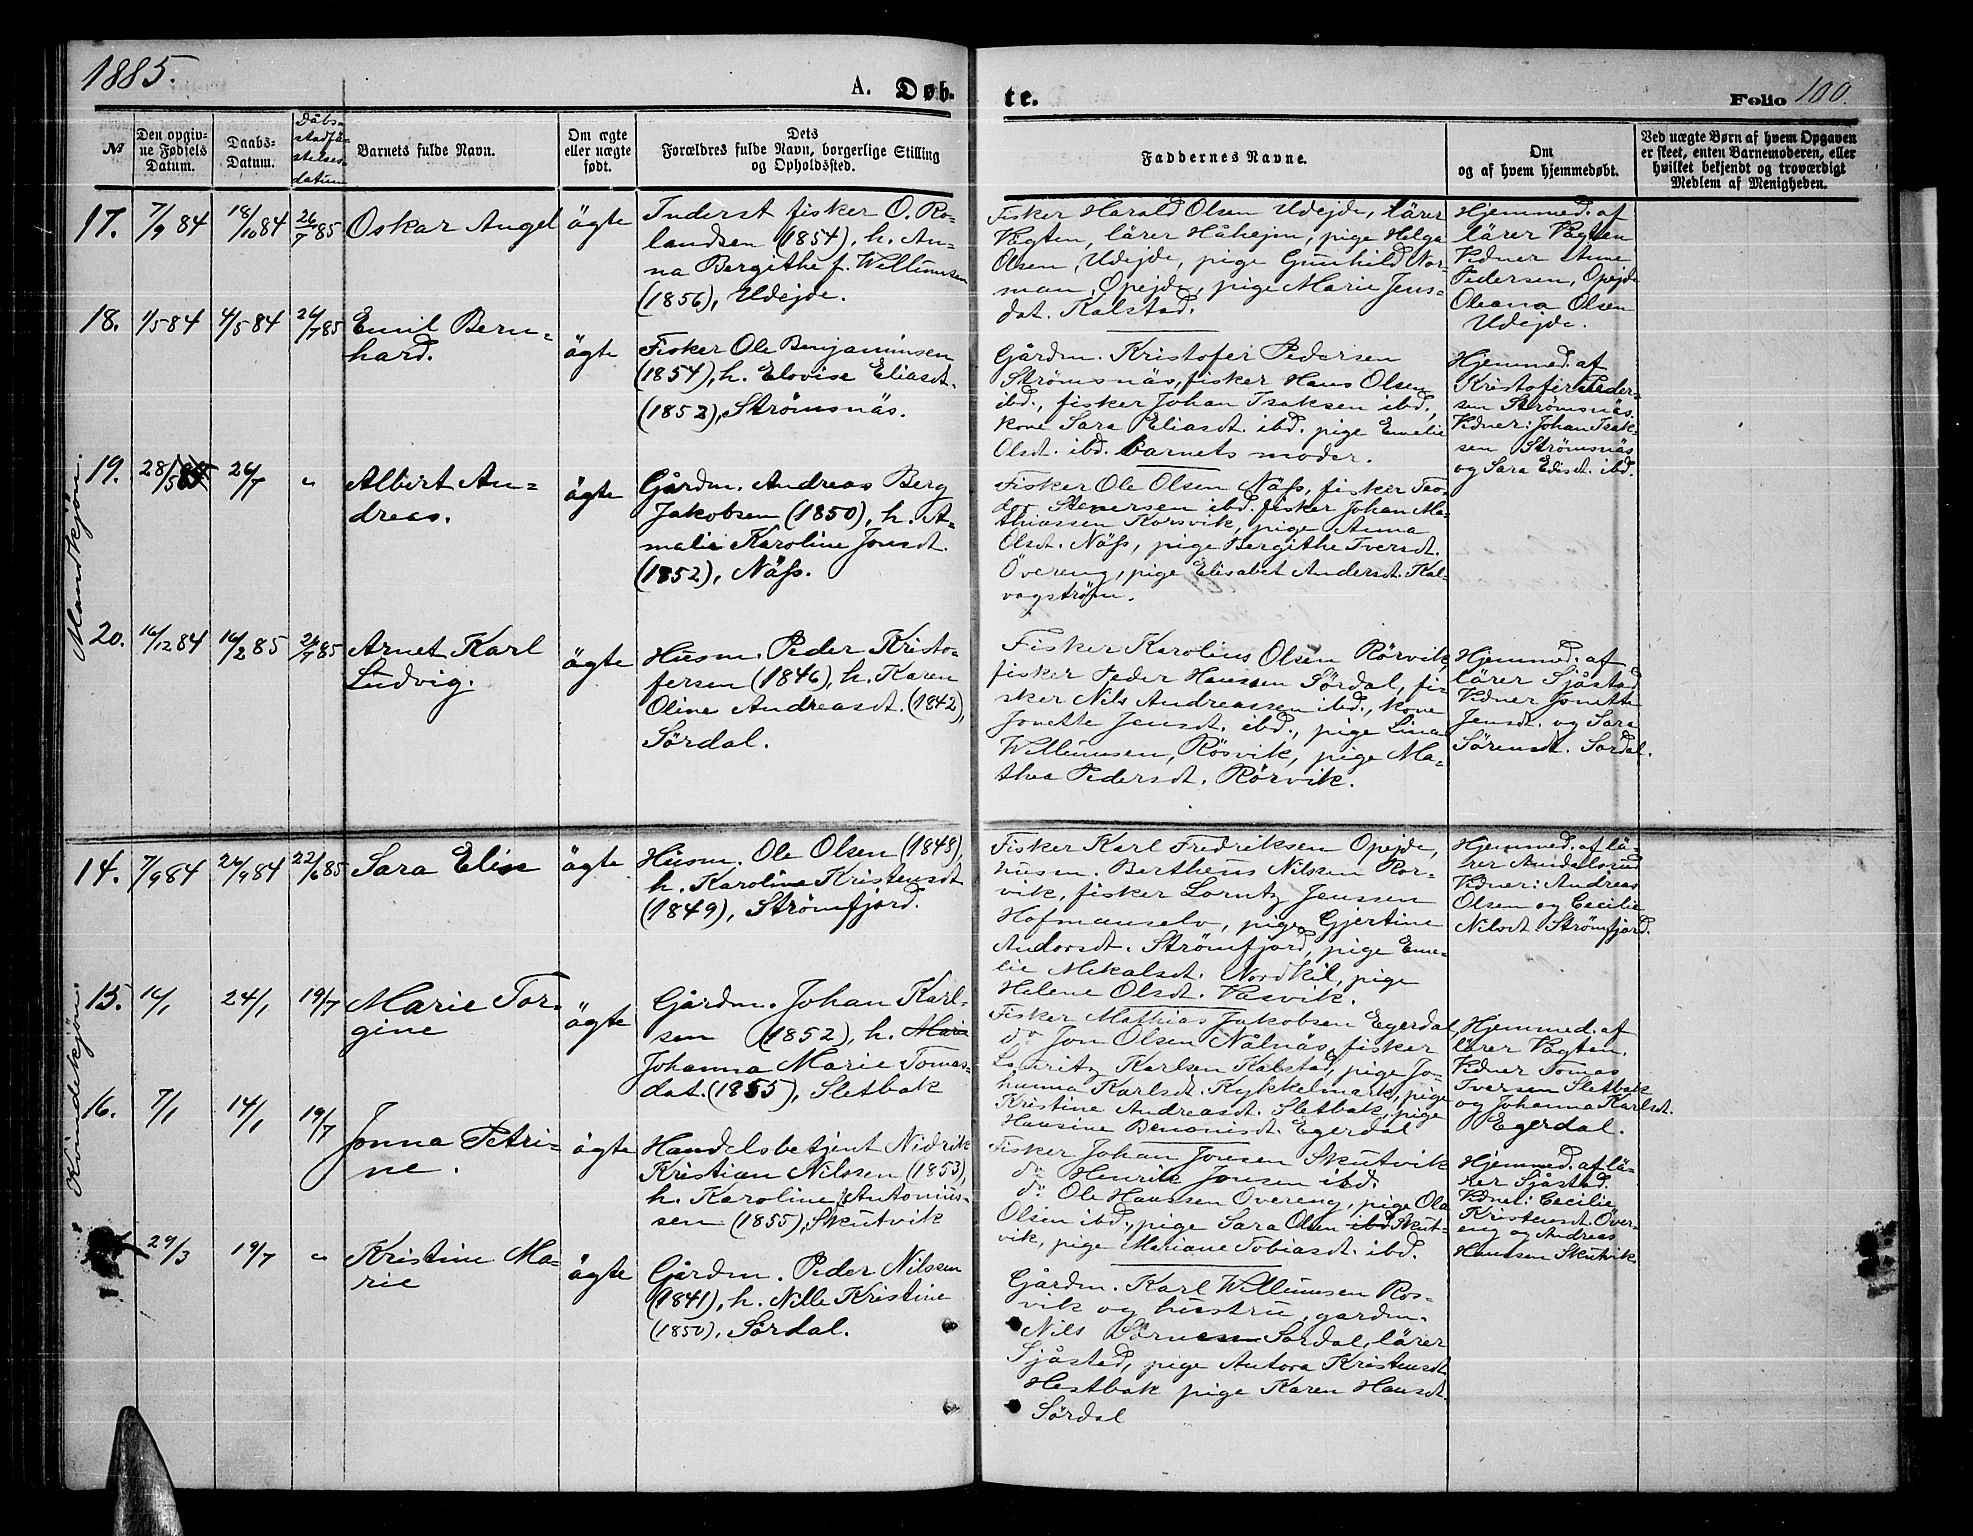 1885.
A. Døb-
te.
Folio 100.
№
Den opgiv-
ne Fødsels
Datum.
Daabs-
Datum.
Dåbs-
stadfä-
stelses-
datum
Barnets fulde Navn.
Om ægte
eller uægte
født.
Dets
Forældres fulde Navn, borgerlige Stilling
og Opholdssted.
Faddernes Navne.
Om
og af hvem hjemmedøbt.
Ved uægte Børn af hvem Opgaven
er skeet, enten Barnemoderen, eller
hvilket bekjendt og troværdigt
Medlem af Menigheden.
Mandkjön.
17. 7/9 84 18/10 84 26/7 85 Oskar Angel ägte
Inderst fisker O. Ro-
landsen (1854), h. An-
na Bergithe f. Willumsen
(1856), Udejde.
Fisker Harald Olsen Udejde, lärer
Vogten, lärer Håhejm, pige Helga
Olsen, Udejde, pige Gunhild Nor-
man, Opejde, pige Marie Jens-
dat. Kalstad.
Hjemmed. af
lärer Vogten
Vidner Anne
Pedersen, Opejde
Oleana Olsen
Udejde.
18. 1/5 84 4/5 84 26/7 85 Emil Bern-
hard. ägte
Fisker Ole Benjaminsen
(1854), h. Elovise Eliasdt.
(1852), Strömsnäs.
Gårdm. Kristofer Pedersen
Strömsnäs, fisker Hans Olsen
ibd., fisker Johan Isaksen ibd.,
kone Sara Eliasdt. ibd. pige Emelie
Olsdt. ibd. barnets moder.
Hjemmed. af
Kristofer Peder-
sen Strömsnäs.
Vidner: Johan Isak-
sen Strömsnäs
og Sara Elisdt. ibd.
19. 28/5 26/7 " Albert An-
dreas. ägte
Gårdm. Andreas Berg
Jakobsen (1850), h. A-
malie Karoline Jonsdt.
(1852), Näss.
Fisker Ole Olsen Näss, fisker Teo-
dor Stenersen ibd. fisker Johan Ma-
thiassen Korsvik, pige Anna
Olsdt. Näss, pige Bergithe Iversdt.
Övereng, pige Elisabet Andersdt. Kal-
vagström.
20. 16/12 84 16/2 85 26/7 85 Arnet Karl
Ludvig. ägte
Husm. Peder Kristo-
fersen (1846), h. Karen
Oline Andreasdt. (1842),
Sördal.
Fisker Karolius Olsen Rörvik,
fisker Peder Hansen Sördal, fi-
sker Nils Andreassen ibd., kone
Jonette Jensdt. ibd., pige Lina
Willumsen, Rösvik, pige Ma-
thea Pedersdt. Rörvik.
Hjemmed. af
lärer Sjåstad
Vidner Jonette
Jensdt. og Sara
Sörensdt. Sördal.
Kvindekjön.
14. 7/9 84 26/9 84 22/6 85 Sara Elise ägte
Husm. Ole Olsen (1848),
h. Karoline Kristensdt
(1849), Strömfjord.
Fisker Karl Fredriksen Opejde,
husm. Bertheus Nilsen Rör-
vik, fisker Lorntz Jenssen
Hofmanselv, pige Gjertine
Andorsdt. Strömfjord, pige Eme-
lie Mekalsdt. Nordkil, pige
Helene Olsdt. Vasvik.
Hjemmed. af lä-
rer
Vidner: Andreas
Olsen og Cecilie
Nilsdt Strömfjord.
15. 16/1 24/1 19/7 Marie Tor-
gine ägte
Gårdm. Johan Karl-
sen (1852), h. Marie
Johanna Marie Tomas-
dat. (1855), Sletbak
Fisker Mathias Jakobsen Egerdal
do Jon Olsen Nålnäs, fisker
Lauritz Karlsen Kalstad, pige Jo-
hanna Karlsdt. Kykkelmark, pige
Kristine Andreasdt. Sletbak, pige
Hansine Benonisdt. Egerdal
Hjemmed. af
lärer Vogten.
Vidner Tomas
Iversen Sletbak
og Johanna Karlsdt.
Egerdal.
16. 7/1 14/1 19/7 Jonna Petri-
ne. ägte
Handelsbetjent Nidrik
Kristian Nilssen (1853),
h. Karoline f. Antonius-
sen (1855), Skutvik
Fisker Johan Jonsen Skutvik
do Henrik Jonsen ibd.
do Ole Hansen Övereng, pige Ola
Olsen ibd., pige Sara Olsen ibd Skut-
vik, pige Mariane Tobiasdt. ibd.
Hjemmed. af lä-
rer Sjåstad.
Vidner: Cecilie
Kristensdt. Över-
eng og Andreas
Hansen Skutvik.
29/3 19/7 " Kristine Ma-
rie ägte
Gårdm. Peder Nilssen
(1841), h. Nille Kristine
(1850), Sördal.
Gårdm. Karl Willumsen Rös-
vik og hustru, gardm.
Nils Sörensen Sördal, lärer
Sjåstad, pige Antora Kristensdt
Hestbak pige Karen Hansdt.
Sördal